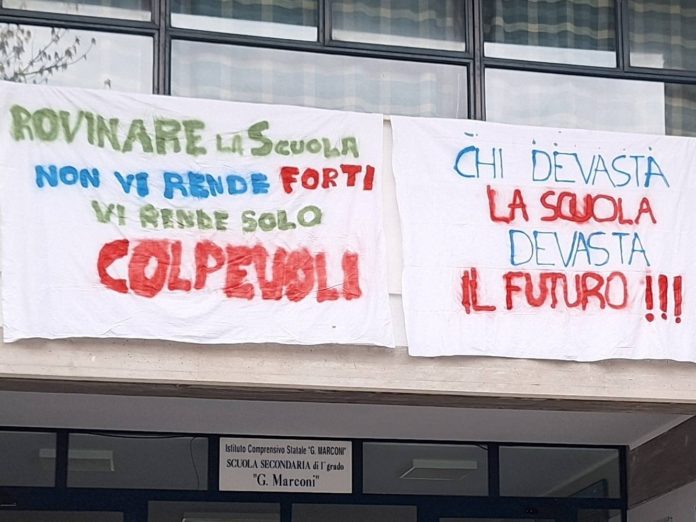 ROVINARE LA SCUOLA
NON VI RENDE FORTI
VI RENDE SOLO
COLPEVOLI
CHI DEVASTA
LA SCUOLA
DEVASTA
IL FUTURO !!!
Istituto Comprensivo Statale "G. MARCONI"
SCUOLA SECONDARIA di I° grado
"G. Marconi"